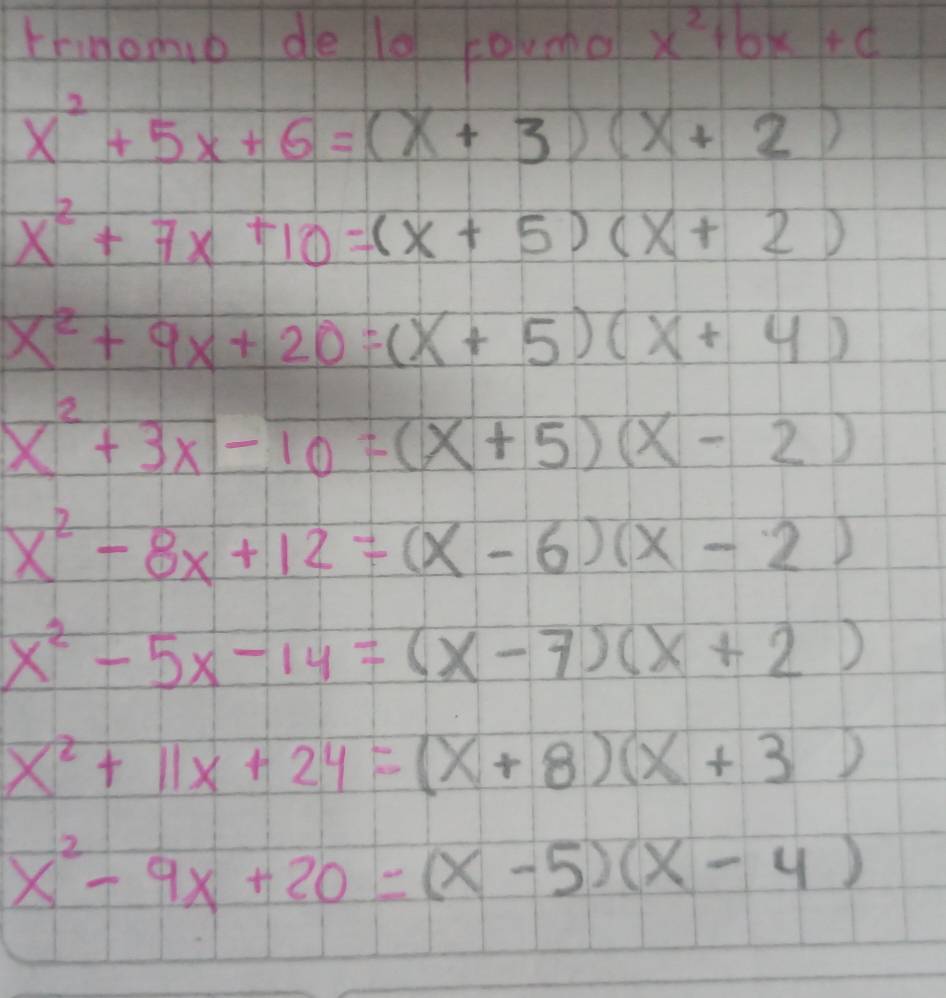 trinomio de la forma x²+bx+c
x² + 5x + 6 = (x + 3) (x + 2)
x² + 7x + 10 = (x + 5) (x + 2)
x² + 9x + 20 = (x + 5) (x + 4)
x² + 3x - 10 = (x + 5) (x - 2)
x² - 8x + 12 = (x - 6) (x - 2)
x² - 5x - 14 = (x - 7) (x + 2)
x² + 11x + 24 = (x + 8) (x + 3)
x² - 9x + 20 = (x - 5) (x - 4)